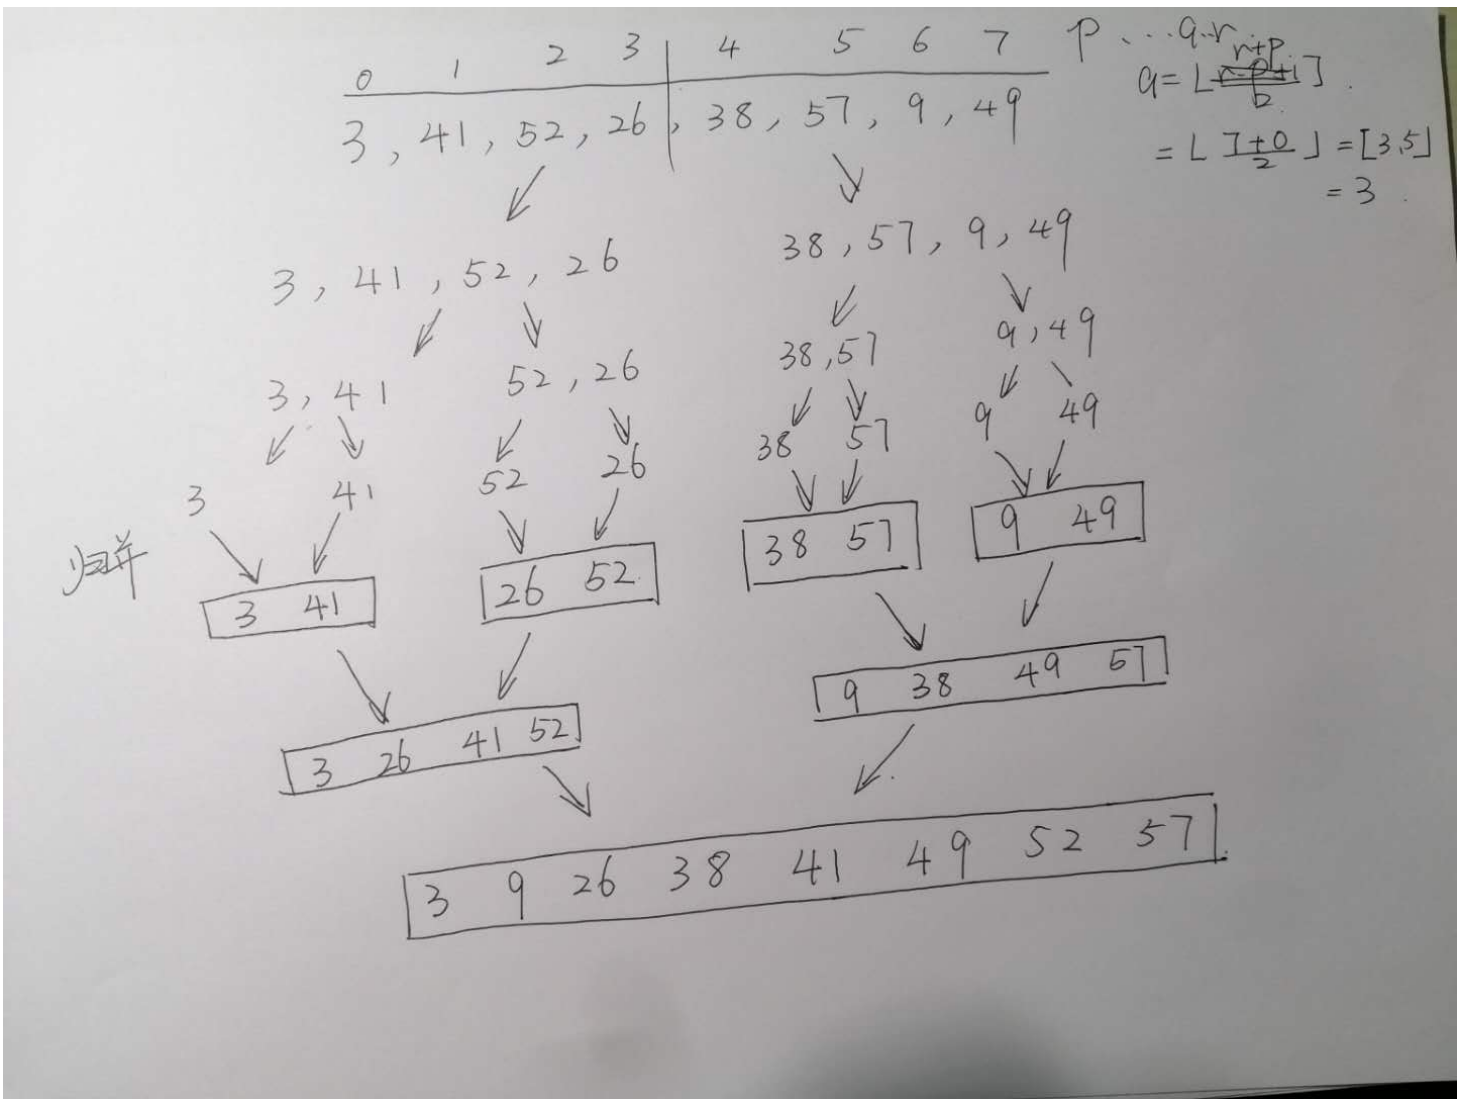 0 1 2 3 4 5 6 7
p...q..r
r+p
q=⌊ / 2⌋
3, 41, 52, 26, 38, 57, 9, 49
=⌊7+0 / 2⌋=[3.5]
=3
3, 41, 52, 26
38, 57, 9, 49
3, 41
52, 26
38, 57
9, 49
3 41 52 26 38 57 9 49
归并
3 41
26 52
38 57
9 49
3 26 41 52
9 38 49 57
3 9 26 38 41 49 52 57